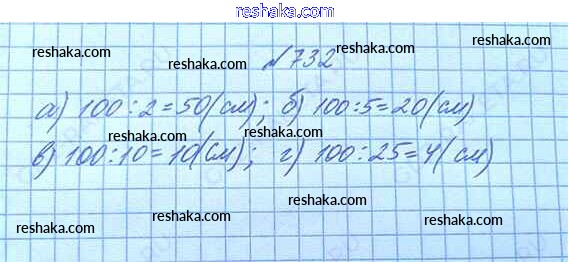 reshaka.com
reshaka.com reshaka.com reshaka.com
№732
reshaka.com reshaka.com
а) 100:2=50(см); б) 100:5=20(см)
reshaka.com reshaka.com
в) 100:10=10(см); г) 100:25=4(см)
reshaka.com reshaka.com
reshaka.com reshaka.com reshaka.com
reshaka.com